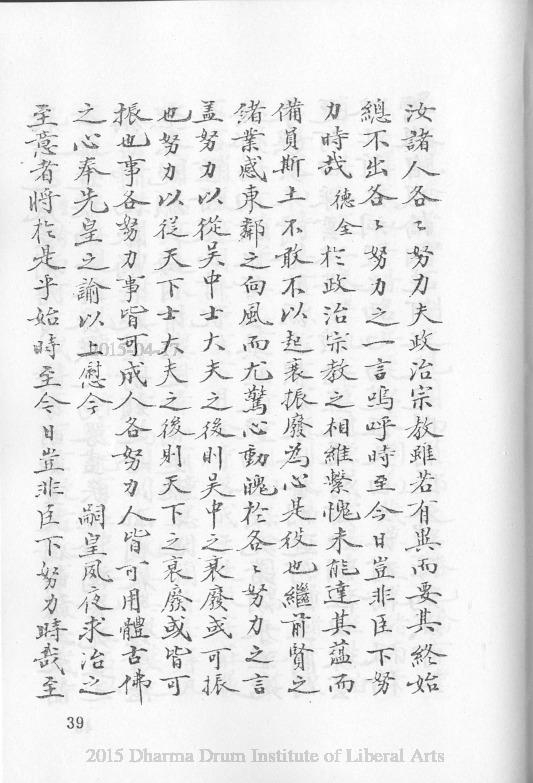 汝諸人各〻努力夫政治宗教雖若有異而要其終始
總不出各〻努力之一言嗚呼時至今日豈非臣下努
力時哉德全於政治宗教之相維繫愧未能達其蘊而
備員斯土不敢不以起衰振廢為心是役也繼前賢之
緒業感東鄰之向風而尤驚心動魄於各〻努力之言
盖努力以從吳中士大夫之後則吳中之衰廢或可振
也努力以從天下士大夫之後則天下之衰廢或皆可
振也事各努力事皆可成人各努力人皆可用體古佛
之心奉先皇之諭以上慰今 嗣皇夙夜求治之
至意者將於是乎始時至今日豈非臣下努力時哉至
2015-04-17
39
2015 Dharma Drum Institute of Liberal Arts